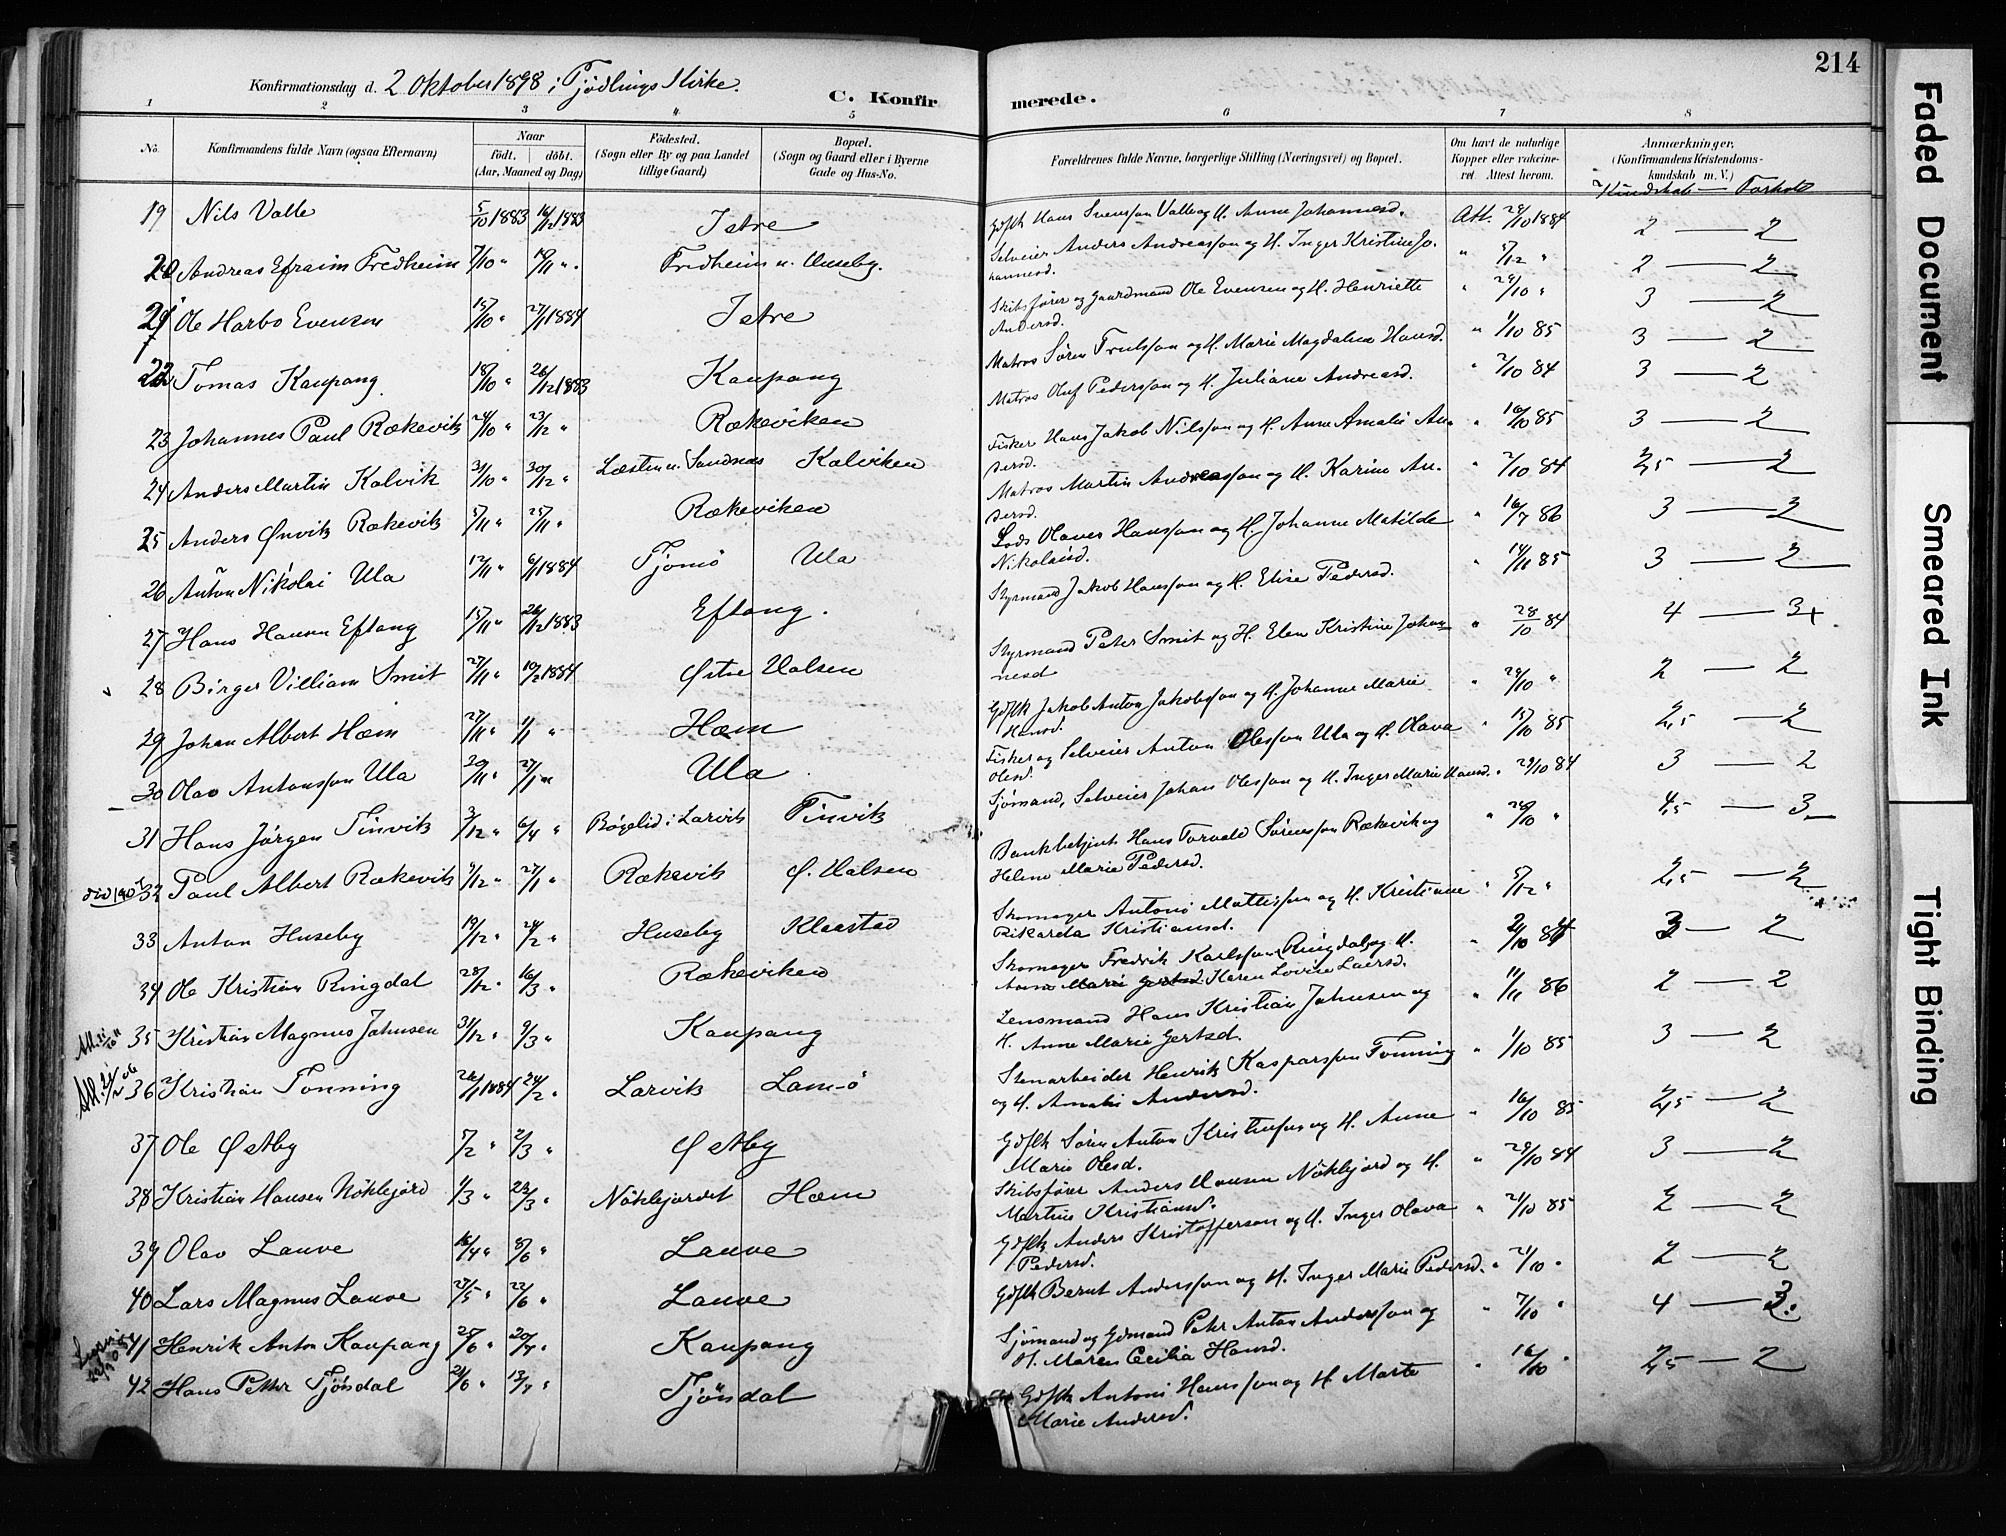 214
Konfirmationsdag d. 2 Oktober 1898 i Tjødlings Kirke.
C. Konfirmerede.
1 2 3 4 5 6 7 8
No. Konfirmandens fulde Navn (ogsaa Efternavn) Naar født. døbt. (Aar, Maaned og Dag) Födested. (Sogn eller By og paa Landet tillige Gaard) Bopæl. (Sogn og Gaard eller i Byerne Gade og Hus-No. Forældrenes fulde Navne, borgerlige Stilling (Næringsvei) og Bopæl. Om havt de naturlige Kopper eller vakcineret. Attest herom. Anmærkninger, (Konfirmandens Kristendomskundskab m. V.)
Kundskab — Forhold
19 Nils Valle 5/10 1883 16/12 1883 Istre Gdsfk Hans Svensson Valle og H. Anne Johannesd. Att. 28/10 1884 2 — 2
20 Andreas Efraim Fredheim 7/10 " 19/11 " Fredheim u. Huseby. Selveier Anders Andreasson og H. Inger Kristine Johannesd. " 5/12 " 2 — 2
21 Ole Harbo Evensen 15/10 " 27/1 1884 Istre Skibsfører og Gaardmand Ole Evensen og H. Henriette Andersd. " 28/10 " 3 — 2
22 Tomas Kaupang 18/10 " 26/12 1883 Kaupang Matros Søren Trulsson og H. Marie Magdalene Hansd. " 1/10 85 3 — 2
23 Johannes Paul Rækevik 24/10 " 23/12 " Rækeviken Matros Oluf Pedersson og H. Juliane Andreasd. " 2/10 84 3 — 2
24 Anders Martin Kalvik 31/10 " 30/12 " Læsten u. Sandnæs Kalviken Fisker Hans Jakob Nilsson og H. Anne Amalie Andersd. " 16/10 85 3 — 2
25 Anders Ønvik Rækevik 5/11 " 25/11 " Rækeviken Matros Martin Andreasson og H. Karine Andersd. " 2/10 84 2,5 — 2
26 Anton Nikolai Ula 12/11 " 6/1 1884 Tjømø Ula Lods Olaves Hansson og H. Johanne Matilde Nikolaisd. " 16/7 86 3 — 2
27 Hans Hansen Eftang 15/11 " 26/12 1883 Eftang. Styrmand Jakob Hansson og H. Elise Pedersd. " 14/11 85 3 — 2
28 Birger Villiam Smit 27/11 " 10/2 1884 Østre Halsen Styrmand Peter Smit og H. Elen Kristine Johannesd " 28/10 84 4 — 3+
29 Johan Albert Hæm 27/11 " 1/1 " Hæm Gdsfk Jakob Anton Jakobsson og H. Johanne Marie Hansd. " 28/10 " 2 — 2
30 Olav Antonsson Ula 29/11 " 27/1 " Ula Fisker og Selveier Anton Olesson Ula og H. Olava Olesd. " 15/10 85 2,5 — 2
31 Hans Jørgen Tinvik 3/12 " 6/4 " Bøgelid i Larvik Tinvik Sjømand, Selveier Johan Olesson og H. Inger Marie Hansd. " 28/10 84 3 — 2
32 Paul Albert Rækevik 9/12 " 27/1 " Rækevik Ø. Halsen Bankbetjent Hans Torvald Sørensson Rækevik og Helene Marie Pedersd. " 28/10 " 4,5 — 3
33 Anton Huseby 19/12 " 24/2 " Huseby Klaastad Skomager Antoni Mattisson og H. Kristiane Rikarda Kristiansd. " 5/12 " 2,5 — 2
34 Ole Kristian Ringdal 28/12 " 16/3 " Rækeviken Skomager Fredrik Karlsson Ringdal og H. Anne Marie Gertsd. Karen Lovise Laersd. " 2/10 84 3 — 2
35 Kristian Magnus Jahnsen 31/12 " 9/3 " Kaupang Lensmand Hans Kristian Jahnsen og H. Anne Marie Gertsd. " 11/11 86 2 — 2
36 Kristian Tonning 26/1 1884 24/2 " Larvik Lamø Stenarbeider Henrik Kasparsson Tonning og H. Amalie Andersd. " 1/10 85 3 — 2
37 Ole Østby 5/2 " 2/3 " Østby Gdsfk Søren Anton Kristensen og H. Anne Marie Olesd. " 16/10 85 2,5 — 2
38 Kristian Hansen Nöklejord 1/3 " 23/3 " Nöklejordet Hæm Skibsfører Anders Hansen Nöklejord og H. Martine Kristiansd. " 28/10 84 3 — 2
39 Olav Lauve 16/4 " 8/6 " Lauve Gdsfk Anders Kristofferson og H. Inger Olava Pedersd. " 21/10 85 2 — 2
40 Lars Magnus Lauve 27/5 " 22/6 " Lauve Gdsfk Bernt Andersson og H. Inger Marie Pedersd. " 21/10 " 2 — 2
41 Henrik Anton Kaupang 25/6 " 20/7 " Kaupang Sjømand og Gdmand Peter Anton Andersson og H. Maren Cecilia Hansd. " 7/10 " 4 — 3.
42 Hans Petter Tjöndal 21/6 " 13/7 " Tjöndal Gdsfk Antoni Hansson og H. Marte Marie Andersd. " 16/10 " 2,5 — 2
Faded Document
Smeared Ink
Tight Binding